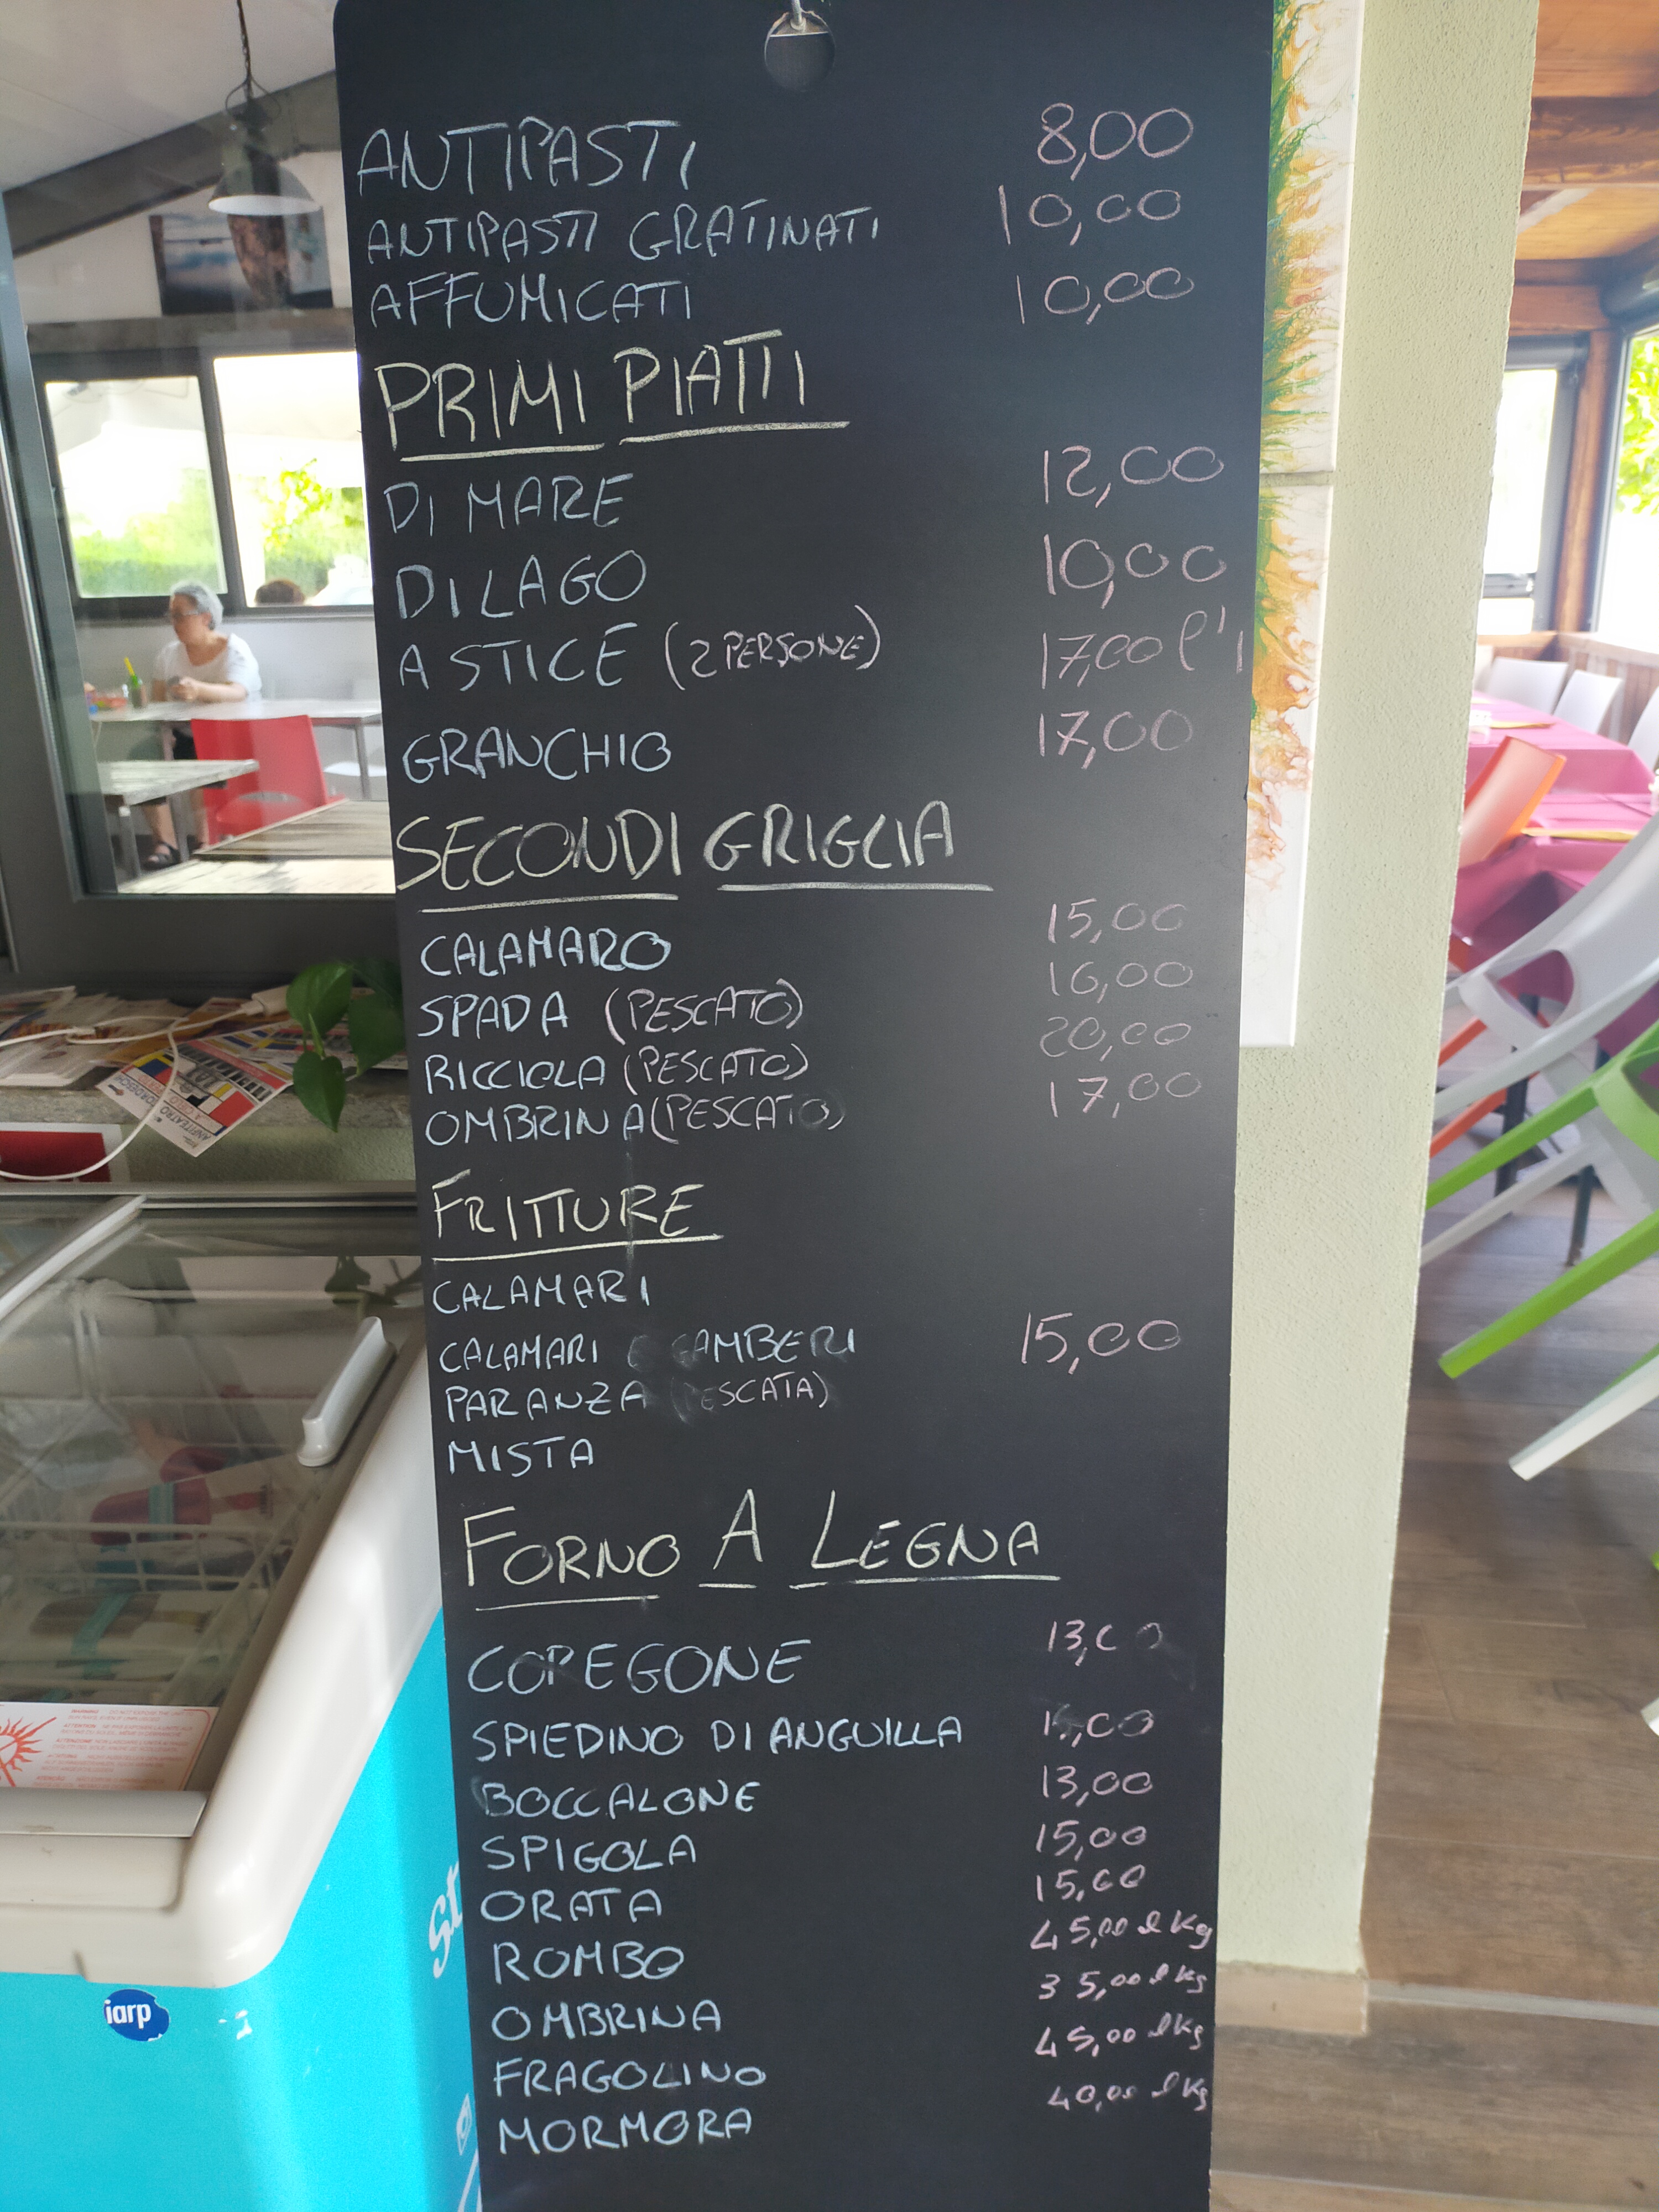 ANTIPASTI 8,00
ANTIPASTI GRATINATI 10,00
AFFUMICATI 10,00
PRIMI PIATTI
DI MARE 12,00
DI LAGO 10,00
ASTICE (2 PERSONE) 17,00 l'1
GRANCHIO 17,00
SECONDI GRIGLIA
CALAMARO 15,00
SPADA (PESCATO) 16,00
RICCIOLA (PESCATO) 20,00
OMBRINA (PESCATO) 17,00
FRITTURE
CALAMARI
CALAMARI E GAMBERI 15,00
PARANZA (PESCATA)
MISTA
FORNO A LEGNA
COREGONE 13,00
SPIEDINO DI ANGUILLA
BOCCALONE 13,00
SPIGOLA 15,00
ORATA 15,00
ROMBO 45,00 al Kg
OMBRINA 35,00 al Kg
FRAGOLINO 45,00 al Kg
MORMORA 40,00 al Kg
iarp